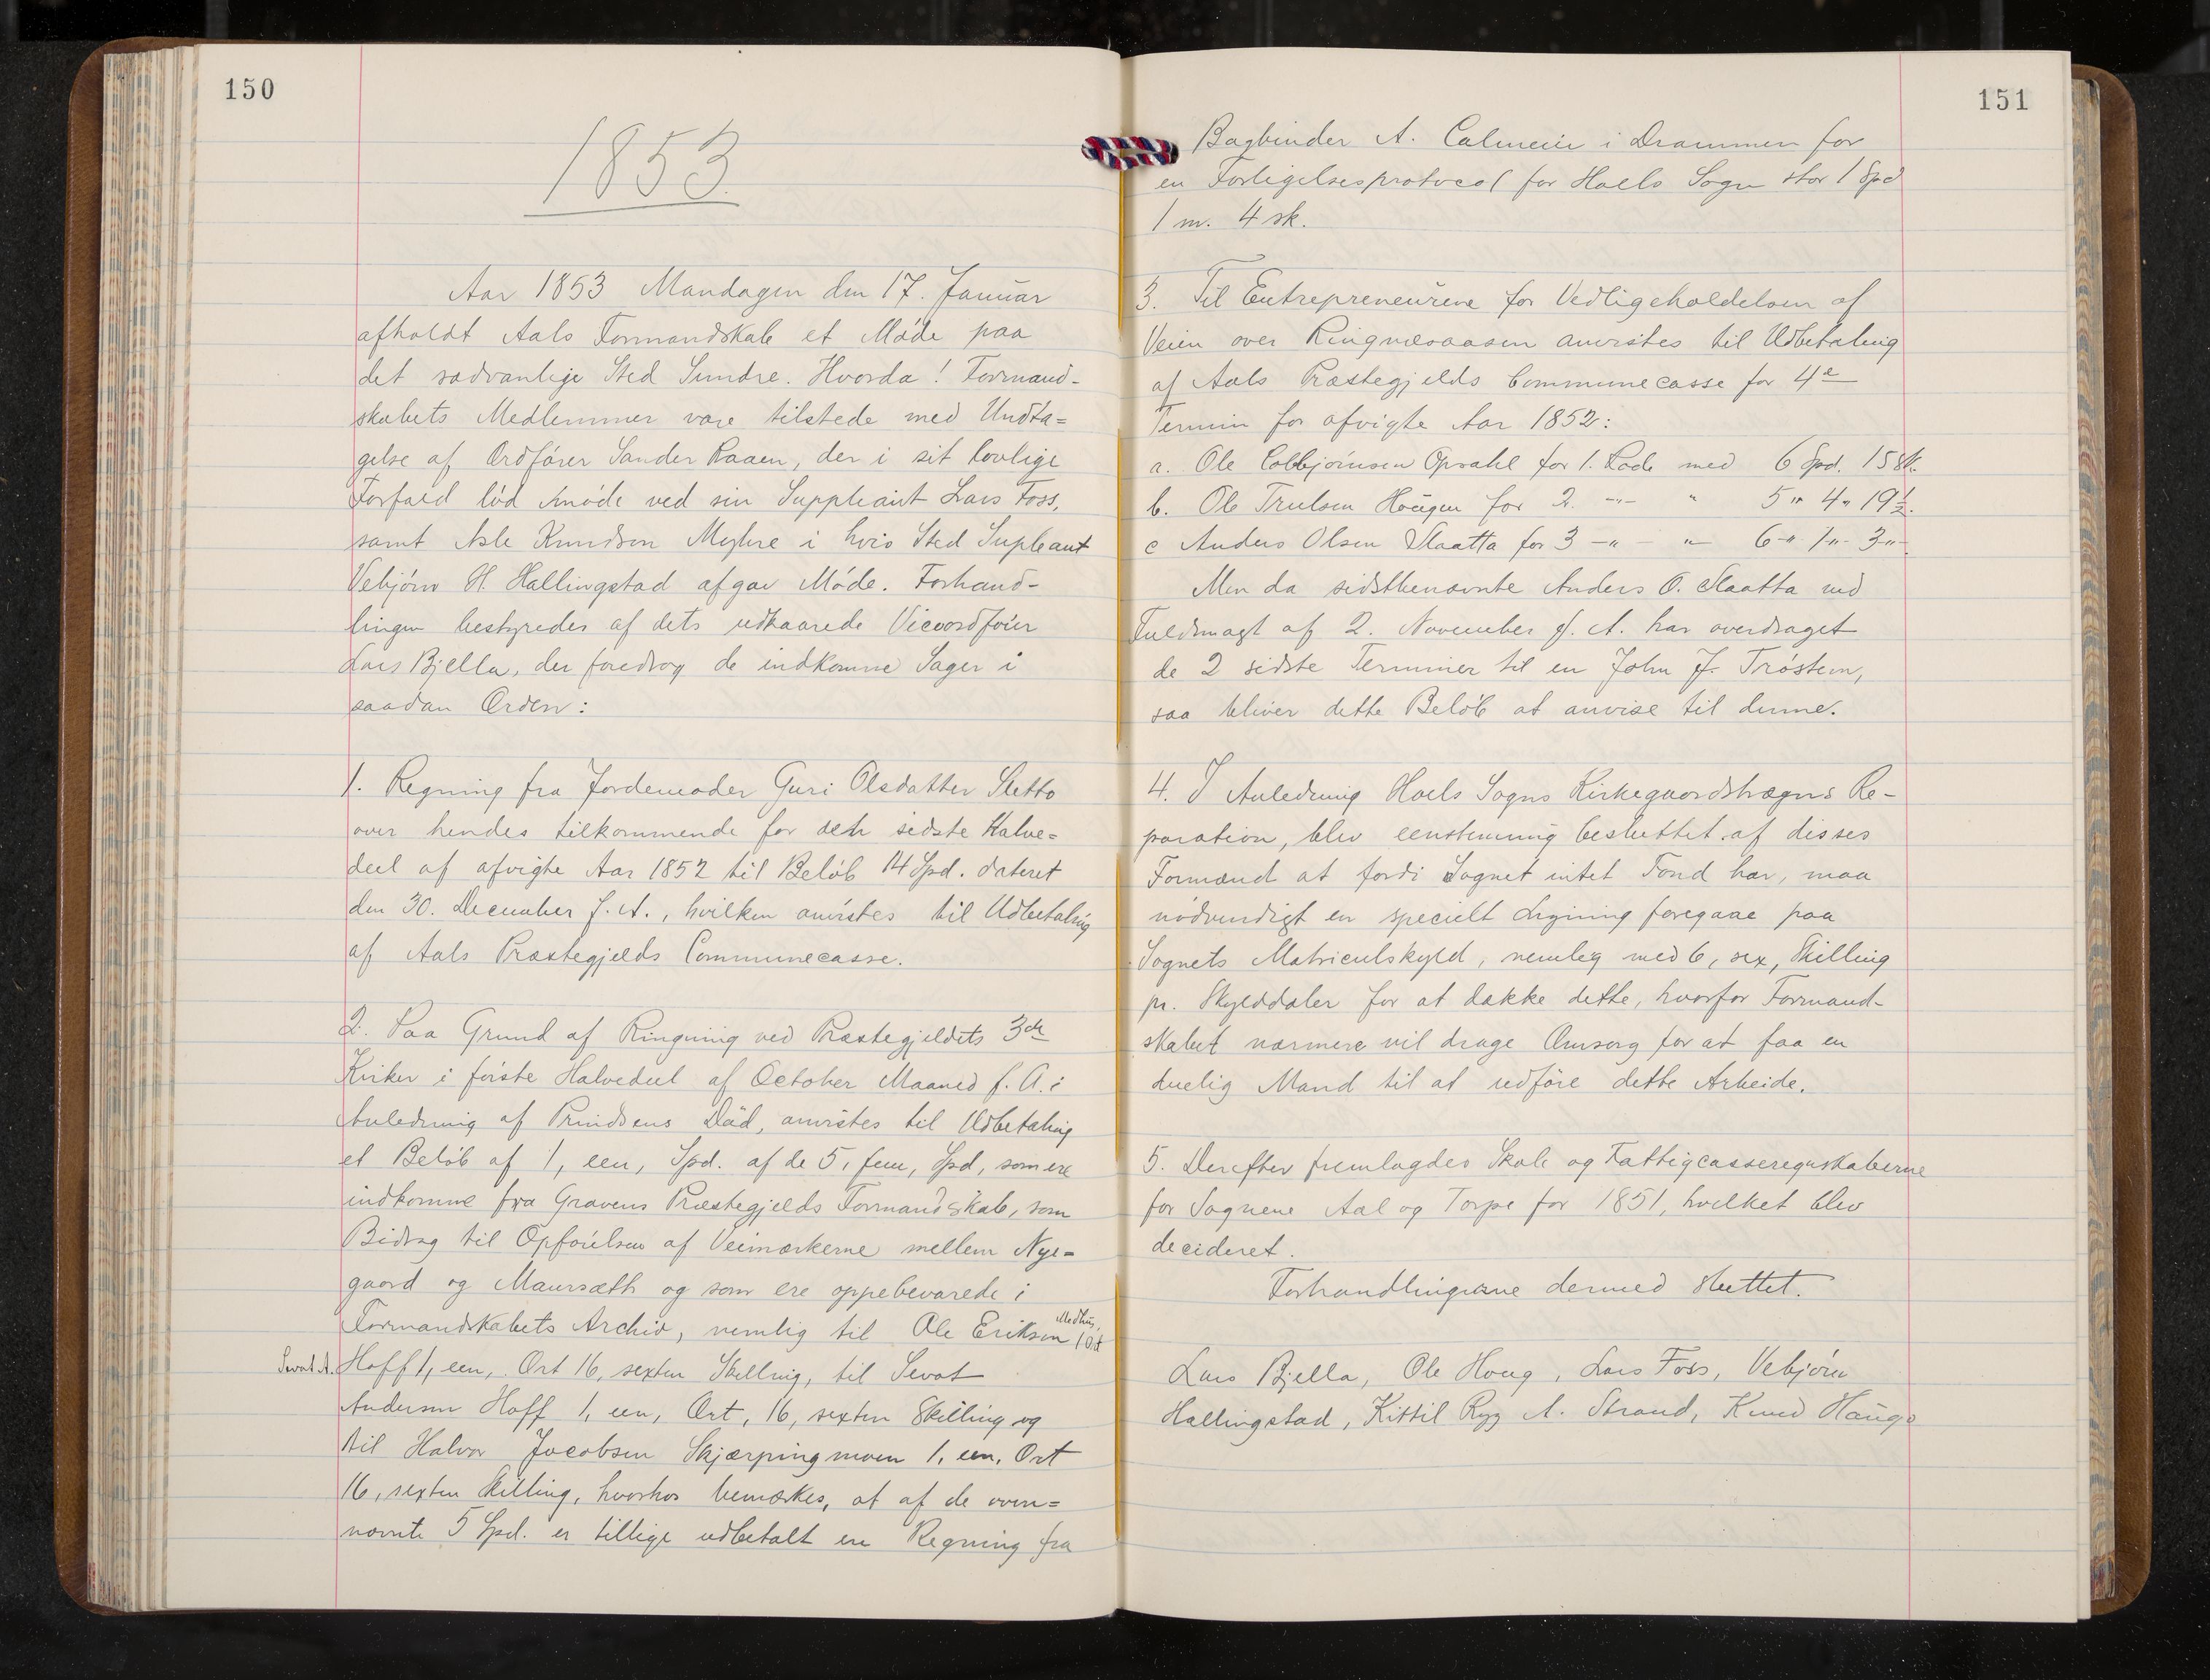 150
1853.
Aar 1853 Mandagen den 17. Januar
afholdt Aals Formandskab et Möde paa
det sædvanlige Sted Sundre. Hvorda! Formand-
skabets Medlemmer vare tilstede med Undta=
gelse af Ordförer Sander Raaen, der i sit lovlige
Forfald lod möde ved sin Suppleant Lars Foss,
samt Asle Knudsen Myhre i hvis Sted Supleant
Vebjörn H. Hallingstad afgav Möde. Forhand-
lingen bestyredes af dets udkaarede Viceordförer
Lars Bjella, der foredrog de indkomne Sager i
saadan Orden:
1. Regning fra Jordemoder Guri Olsdatter Sletto
over hendes tilkommende for den sidste Halve=
deel af afvigte Aar 1852 til Belöb 14 Spd. dateret
den 30. December f. A., hvilken anvistes til Udbetaling
af Aals Præstegjelds Communecasse.
2. Paa Grund af Ringning ved Præstegjeldets 3de
Kirker i förste Halvedeel af October Maaned f. A. i
Anledning af Prindsens Död, anvistes til Udbetaling
et Belöb af 1, een, Spd. af de 5, fem, Spd, som ere
indkomne fra Gravens Præstegjelds Formandskab, som
Bidrag til Opförelsen af Veimærkerne mellem Nye-
gaard og Maursæth og som ere oppebevarede i
Formandskabets Archiv, nemlig til Ole Eriksen Medhus, 1 Ort
Sevat A. Hoff 1, een, Ort 16, sexten Skilling, til Sevat
Andersen Hoff 1, een, Ort, 16, sexten Skilling og
til Halvor Jacobsen Skjærpingmoen 1, een, Ort
16, sexten Skilling, hvorhos bemærkes, at af de oven=
nævnte 5 Spd. er tillige udbetalt en Regning fra
151
Bogbinder A. Calmeier i Drammen for
en Forligelsesprotocol for Hols Sogn stor 1 Spd
1 m. 4 sk.
3. Til Entrepreneurene for Vedligeholdelsen af
Veien over Ringnæsaasen anvistes til Udbetaling
af Aals Præstegjelds Communecasse for 4e
Termin for afvigte Aar 1852:
a. Ole Colbjörnsen Opsahl for 1. Rode med 6 Spd. 15 sk.
b. Ole Trulsen Haugen for 2. -"- " 5 " 4 " 19 1/2.
c Anders Olsen Slaatta for 3 -"- -"- 6 -"- 1 -"- 3 -"-
Men da sidstbenævnte Anders O. Slaatta ved
Fuldmagt af 2. November f. A. har overdraget
de 2 sidste Terminer til en John J. Tröstem,
saa bliver dette Belöb at anvise til denne.
4. I Anledning Hols Sogns Kirkegaardshægns Re-
paration, blev eenstemmig besluttet af disses
Formænd at fordi Sognet intet Fond har, maa
nödvendigt en specielt Ligning foregaae paa
Sognets Matriculskyld, nemlig med 6, sex, Skilling
pr. Skylddaler for at dække dette, hvorfor Formand-
skabet nærmere vil drage Omsorg for at faa en
duelig Mand til at udföre dette Arbeide.
5. Derefter fremlagdes Skole og Fattigcasseregnskaberne
for Sognene Aal og Torpe for 1851, hvilket blev
decideret.
Forhandlingerne dermed sluttet.
Lars Bjella, Ole Houg, Lars Foss, Vebjörn
Hallingstad, Kittil Ryg A. Strand, Knud Haugo